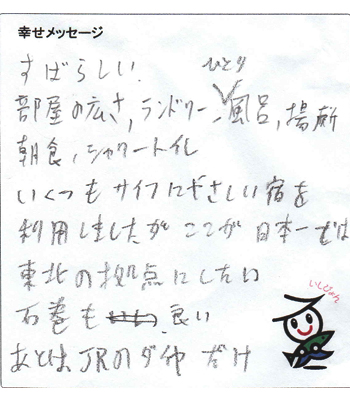 幸せメッセージ
すばらしい.
ひとり
部屋の広さ,ランドリー,風呂,場所
朝食,シャワートイレ
いくつもサイフにやさしい宿を
利用しましたがここが日本一では
東北の拠点にしたい
石巻も 良い
あとはJRのダイヤだけ